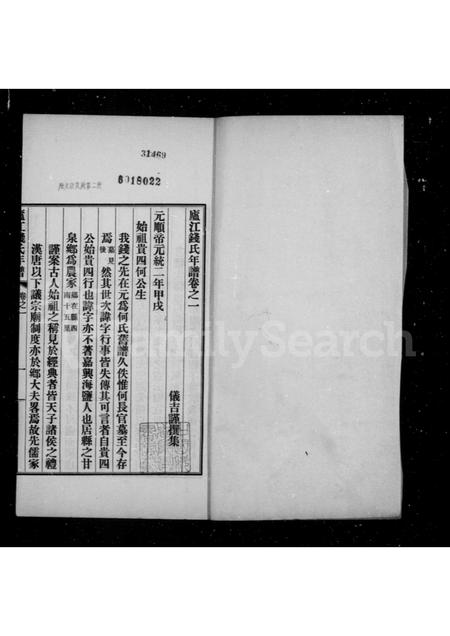 31469
6018022
廬江錢氏年譜卷之一
儀吉謹撰集
元順帝元統二年甲戌
始祖貴四何公生
我錢之先在元爲何氏舊譜久佚惟何長官墓至今存
焉墓見後然其世次諱字行事皆失傳其可言者自貴四
公始貴四行也諱字亦不著嘉興海鹽人也居縣之甘
泉鄉爲農家鄉在縣西南十五里
謹案古人始祖之稱見於經典者皆天子諸侯之禮
漢唐以下議宗廟制度亦於鄉大夫畧焉故先儒家
廬江錢氏年譜
卷之一
一
FamilySearch